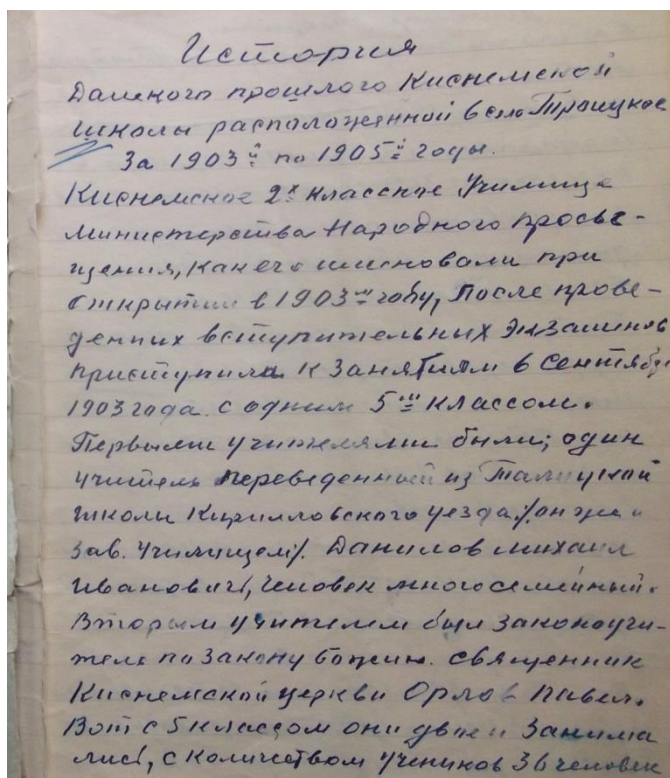 История
Далекого прошлого Киснемской
школы расположенной в село Троицкое
За 1903й по 1905й годы.
Киснемское 2х классное Училище
министерства Народного просве-
щения, как его именовали при
открытии в 1903м году, после прове-
денных вступительных экзаменов
приступила к занятиям в Сентябре
1903 года с одним 5м классом.
Первыми учителями были; один
учитель переведенный из Талицкой
школы Кирилловского уезда /. он же и
зав. Училищем/. Данилов михаил
Иванович, человек многосемейный.
Вторым учителем был законоучи-
тель по закону божию. священник
Киснемской церкви Орлов Павел.
Вот с 5 классом они двое и занима
лись, с количеством учеников 36 человек